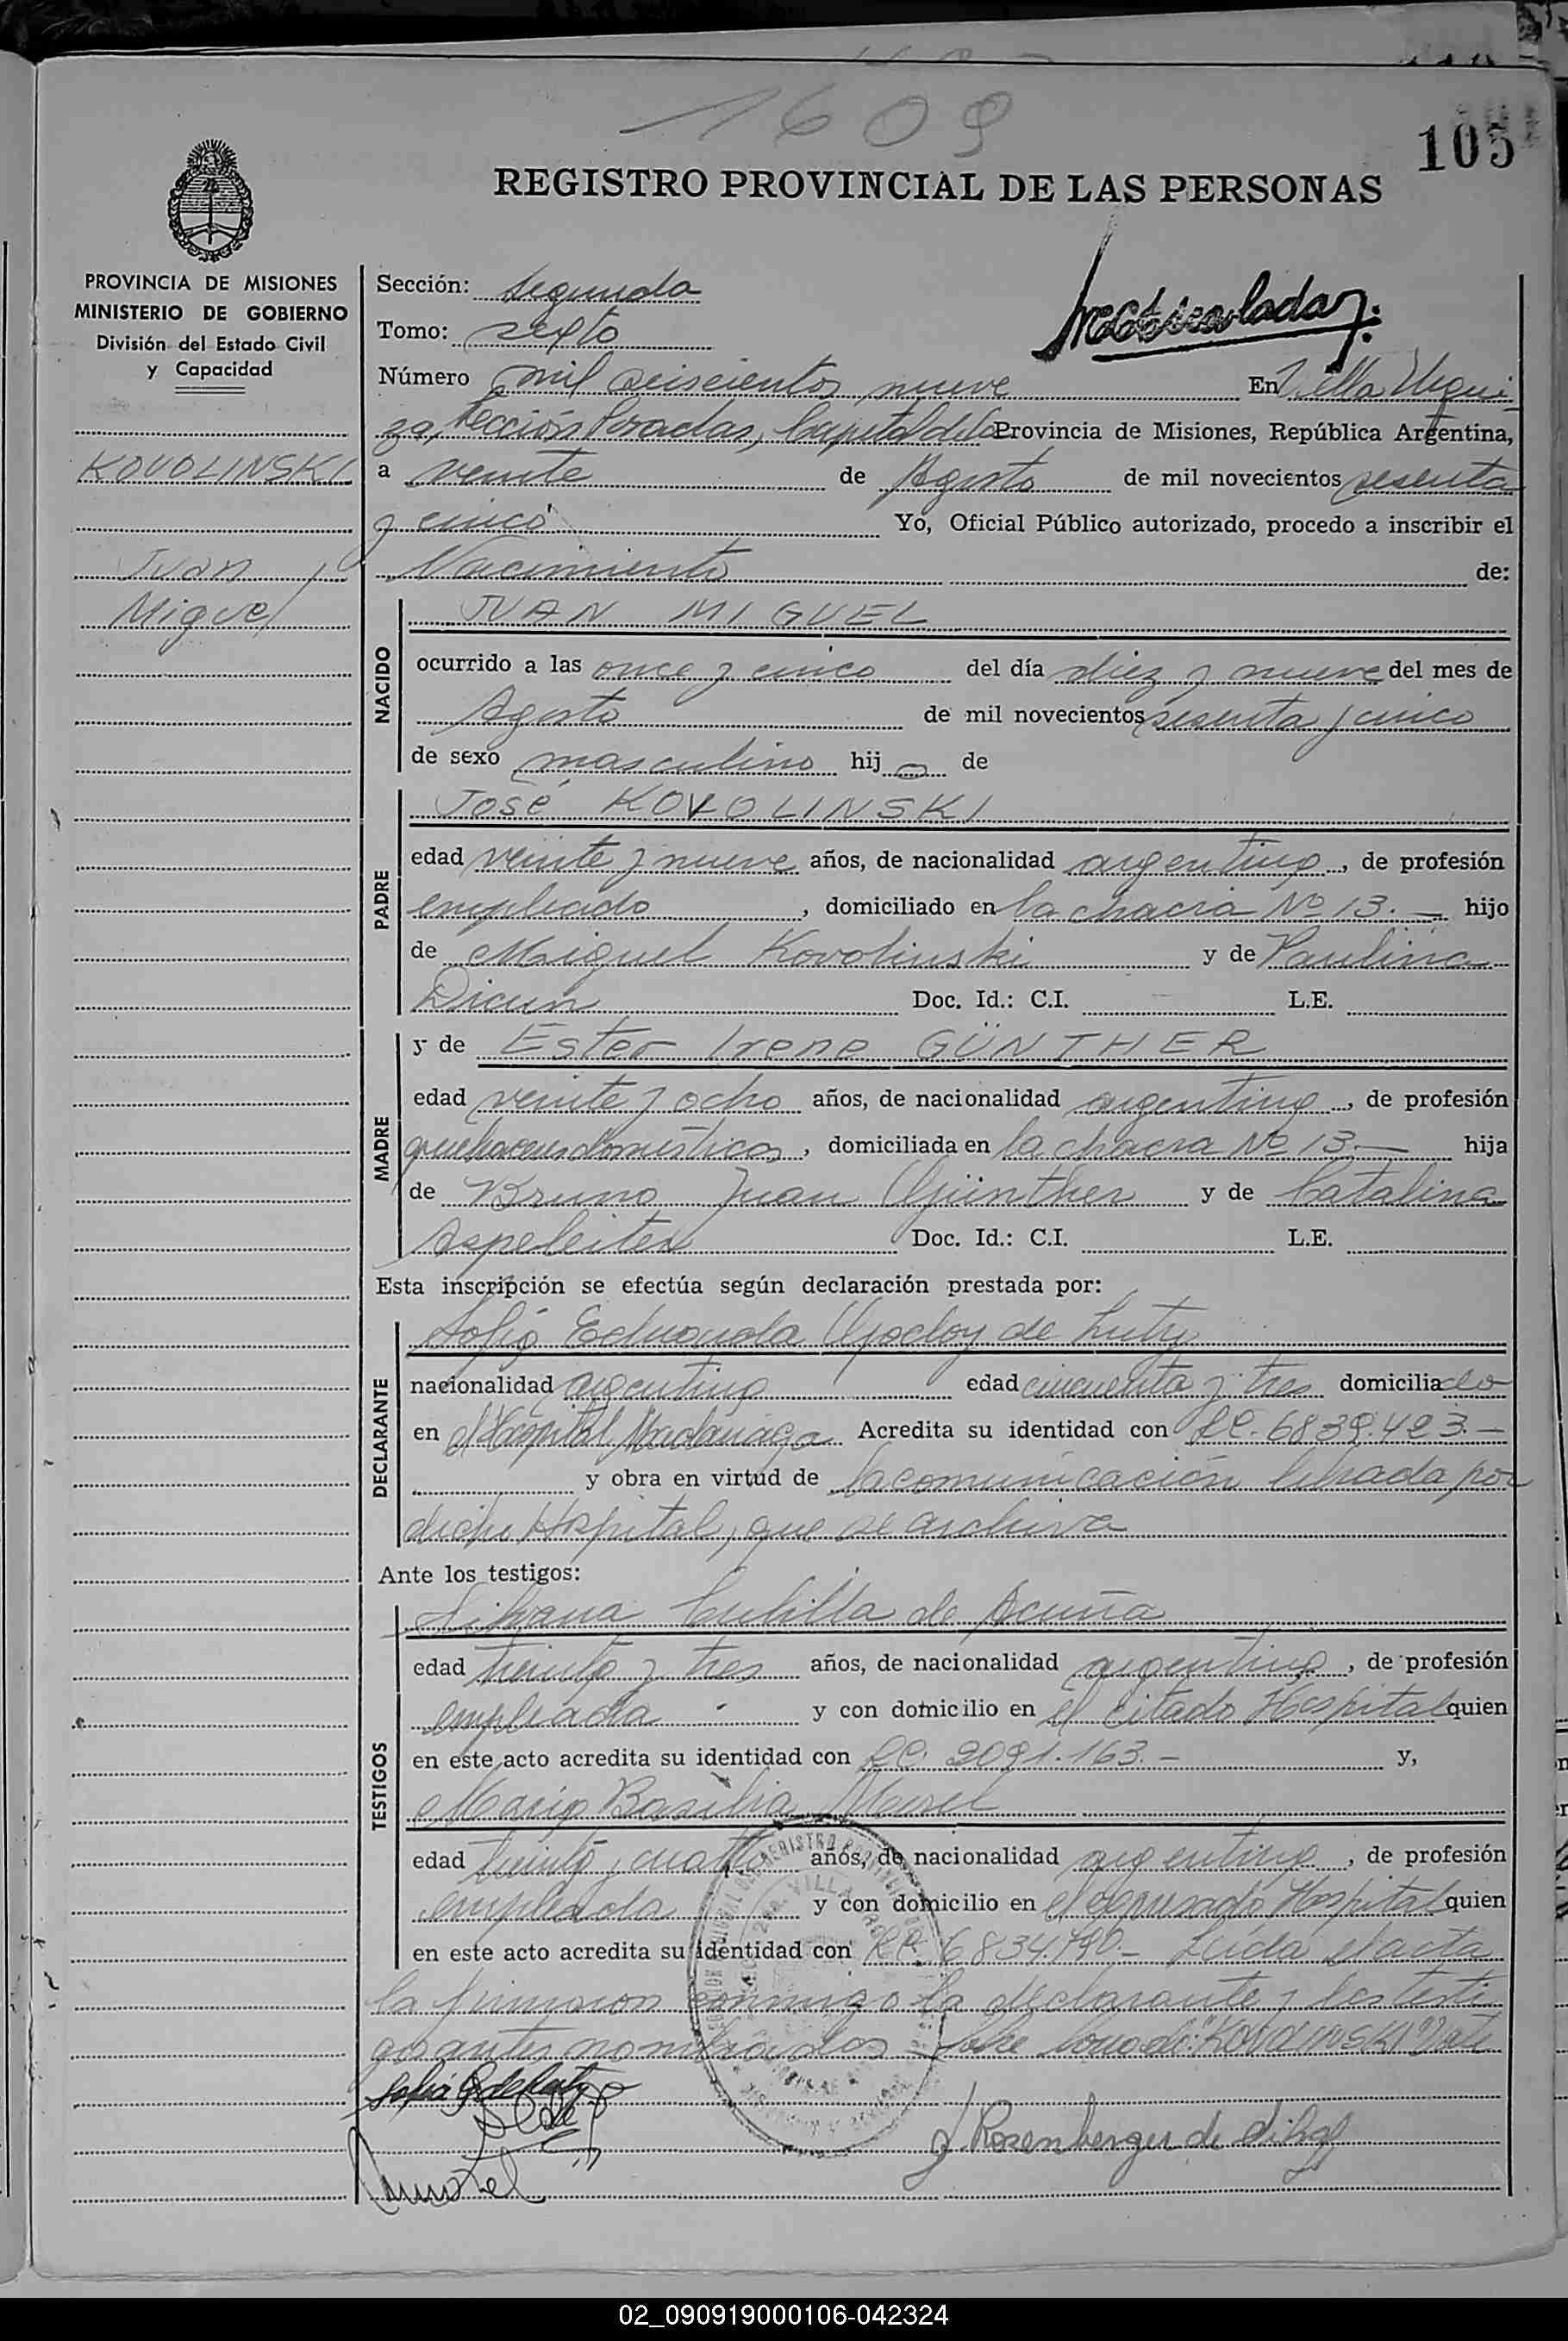 1609
105
REGISTRO PROVINCIAL DE LAS PERSONAS
PROVINCIA DE MISIONES
MINISTERIO DE GOBIERNO
División del Estado Civil
y Capacidad
KOVOLINSKI
Juan
Miguel
Sección: segunda
Tomo: sexto
Número mil seiscientos nueve En Villa Urqui-
za, Sección Posadas, Capital de la Provincia de Misiones, República Argentina,
a veinte de Agosto de mil novecientos sesenta
y cinco Yo, Oficial Público autorizado, procedo a inscribir el
Nacimiento de:
NACIDO
JUAN MIGUEL
ocurrido a las once y cinco del día diez y nueve del mes de
Agosto de mil novecientos sesenta y cinco
de sexo masculino hijo de
PADRE
José KOVOLINSKI
edad veinte y nueve años, de nacionalidad argentina, de profesión
empleado, domiciliado en la chacra Nº 13.— hijo
de Miguel Kovolinski y de Paulina
Dicun Doc. Id.: C.I. L.E.
MADRE
y de Ester Irene GÜNTHER
edad veinte y ocho años, de nacionalidad argentina, de profesión
quehaceres domésticos, domiciliada en la chacra Nº 13.— hija
de Bruno Juan Günther y de Catalina
Aspeleiter Doc. Id.: C.I. L.E.
Esta inscripción se efectúa según declaración prestada por:
DECLARANTE
Sofía Eduarda Godoy de
nacionalidad argentina edad cincuenta y tres domiciliado
en el Hospital Madariaga Acredita su identidad con LC. 6839.423.—
y obra en virtud de la comunicación librada por
dicho Hospital, que se archiva
Ante los testigos:
TESTIGOS
Silvana Cubilla de Acuña
edad treinta y tres años, de nacionalidad argentina, de profesión
empleada y con domicilio en el citado Hospital quien
en este acto acredita su identidad con LC. 2091.163.— y,
María Basilia
edad treinta y cuatro años, de nacionalidad argentina, de profesión
empleada y con domicilio en el expresado Hospital quien
en este acto acredita su identidad con LC. 6834.790.— Leída el acta
la firmaron conmigo la declarante y los testi
gos antes nombrados Sobre borrado: "KOVOLINSKI" Vale
J. Rosenberger de
02_090919000106-042324